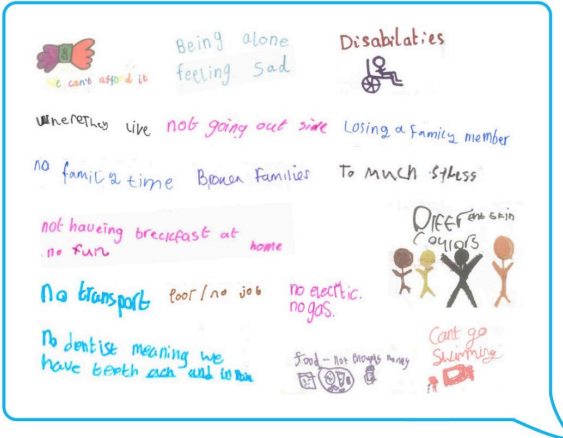 we can't afford it
Being alone
feeling sad
Disabilaties
Where they live
not going out side
Losing a family member
no family time
Broken Families
To much stress
not haveing breckfast at home
no fun
Different skin
Coulors
no transport
Poor / no job
no electric.
no gas.
No dentist meaning we
have teeth ach and in Pain
food - not enough money
Cant go
Swimming